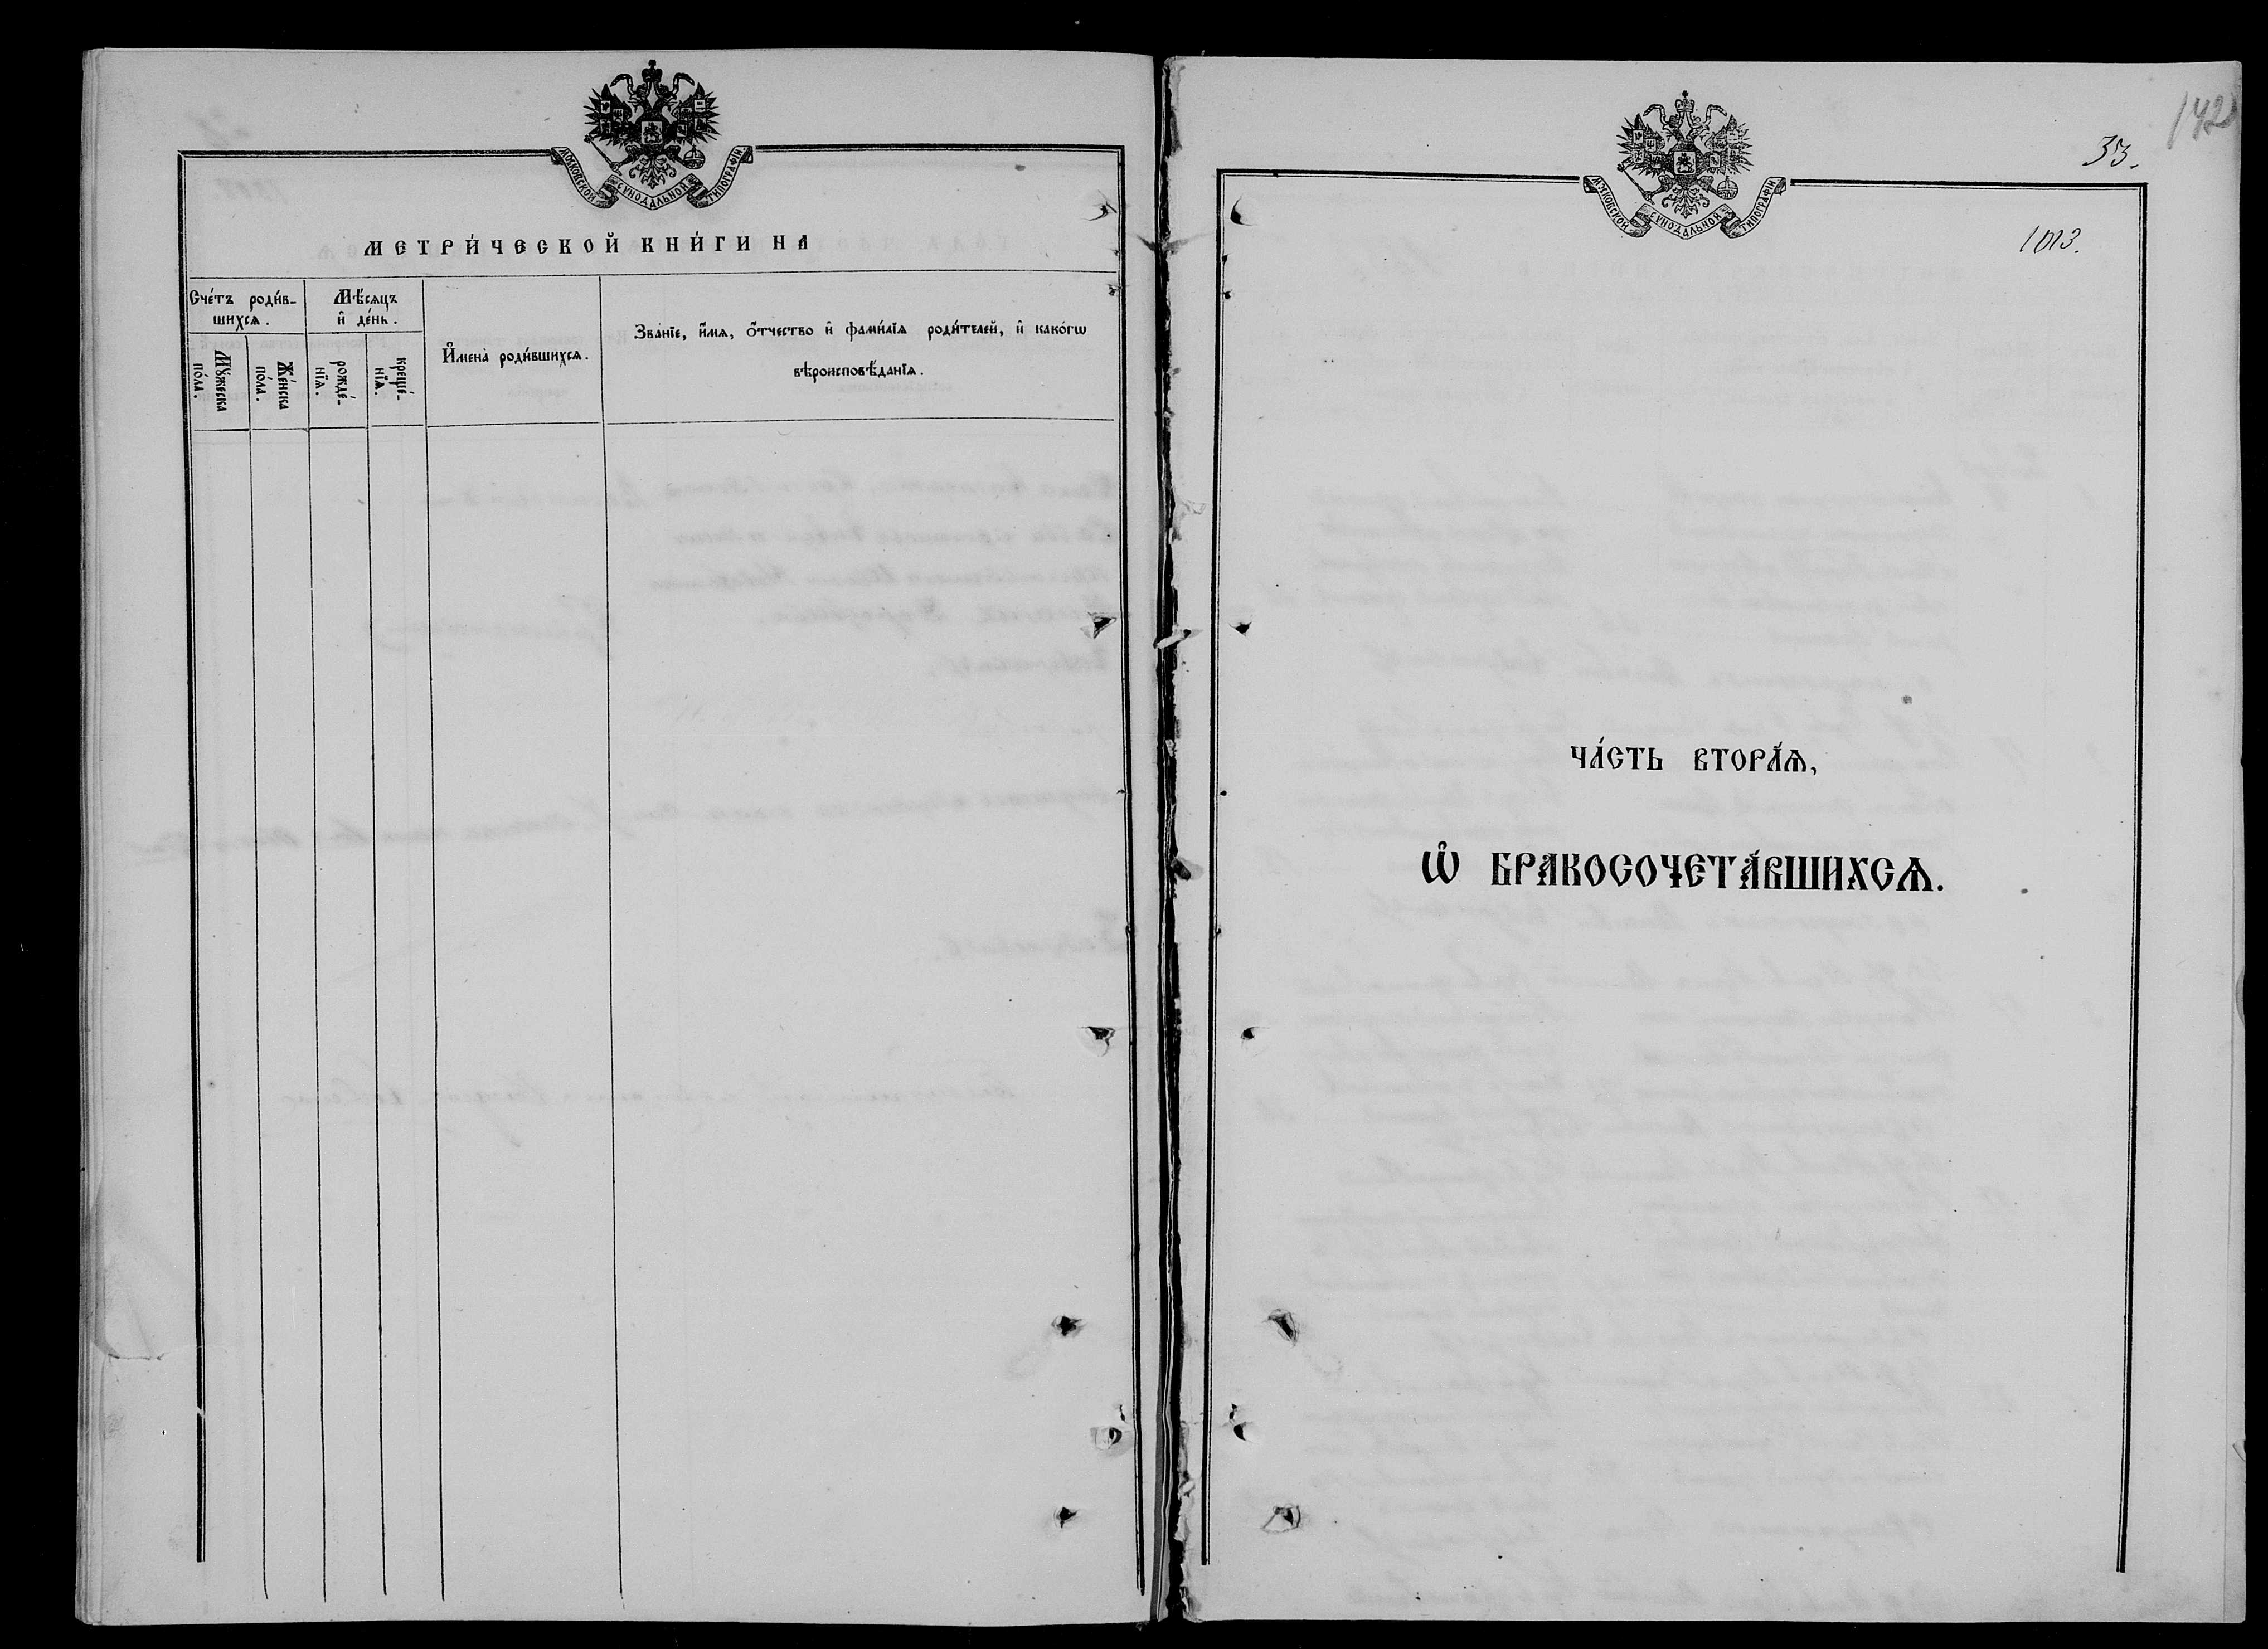 МОСКОВСКОЙ СѴНОДАЛЬНОЙ ТИПОГРАФІИ
МЕТРИ́ЧЕСКОЙ КНИ́ГИ НА
Сче́тъ роди́в-
шихсѧ.
Мѣ́сѧцъ
и҆ де́нь.
И҆мена̀ роди́вшихсѧ.
Зва́нїе, и҆́мѧ, ѻ҆́тчество и҆ фами́лїѧ роди́телей, и҆ како́гѡ
вѣроисповѣ́данїѧ.
Мꙋ́жеска
по́ла.
Же́нска
по́ла.
рожде́-
нїѧ.
креще́-
нїѧ.
142
33.
МОСКОВСКОЙ СѴНОДАЛЬНОЙ ТИПОГРАФІИ
1013.
ЧА́СТЬ ВТОРА́Ѧ,
Ѡ҆ БРАКОСОЧЕТА́ВШИХСѦ.